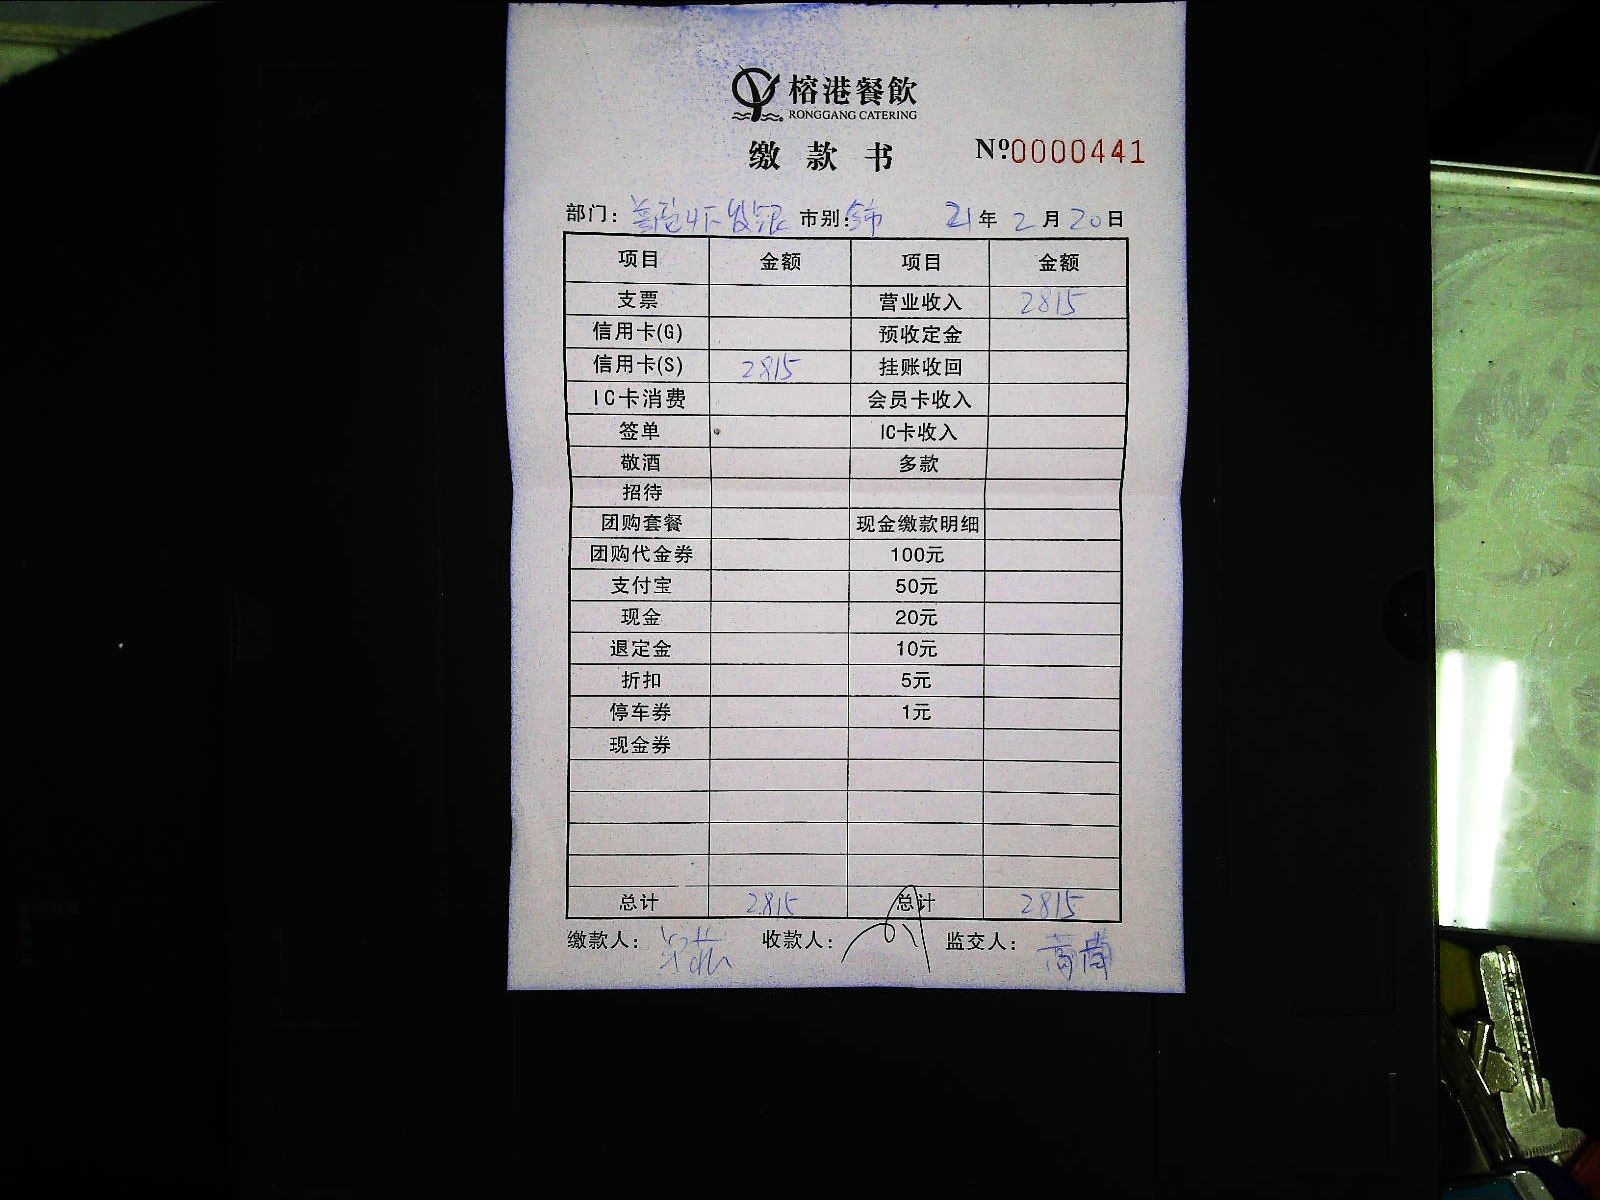 榕港餐飲
RONGGANG CATERING
缴款书 №0000441
部门： 市别： 21年2月20日
项目 金额 项目 金额
支票 营业收入 2815
信用卡(G) 预收定金
信用卡(S) 2815 挂账收回
IC卡消费 会员卡收入
签单 IC卡收入
敬酒 多款
招待
团购套餐 现金缴款明细
团购代金券 100元
支付宝 50元
现金 20元
退定金 10元
折扣 5元
停车券 1元
现金券
总计 2815 总计 2815
缴款人： 收款人： 监交人：